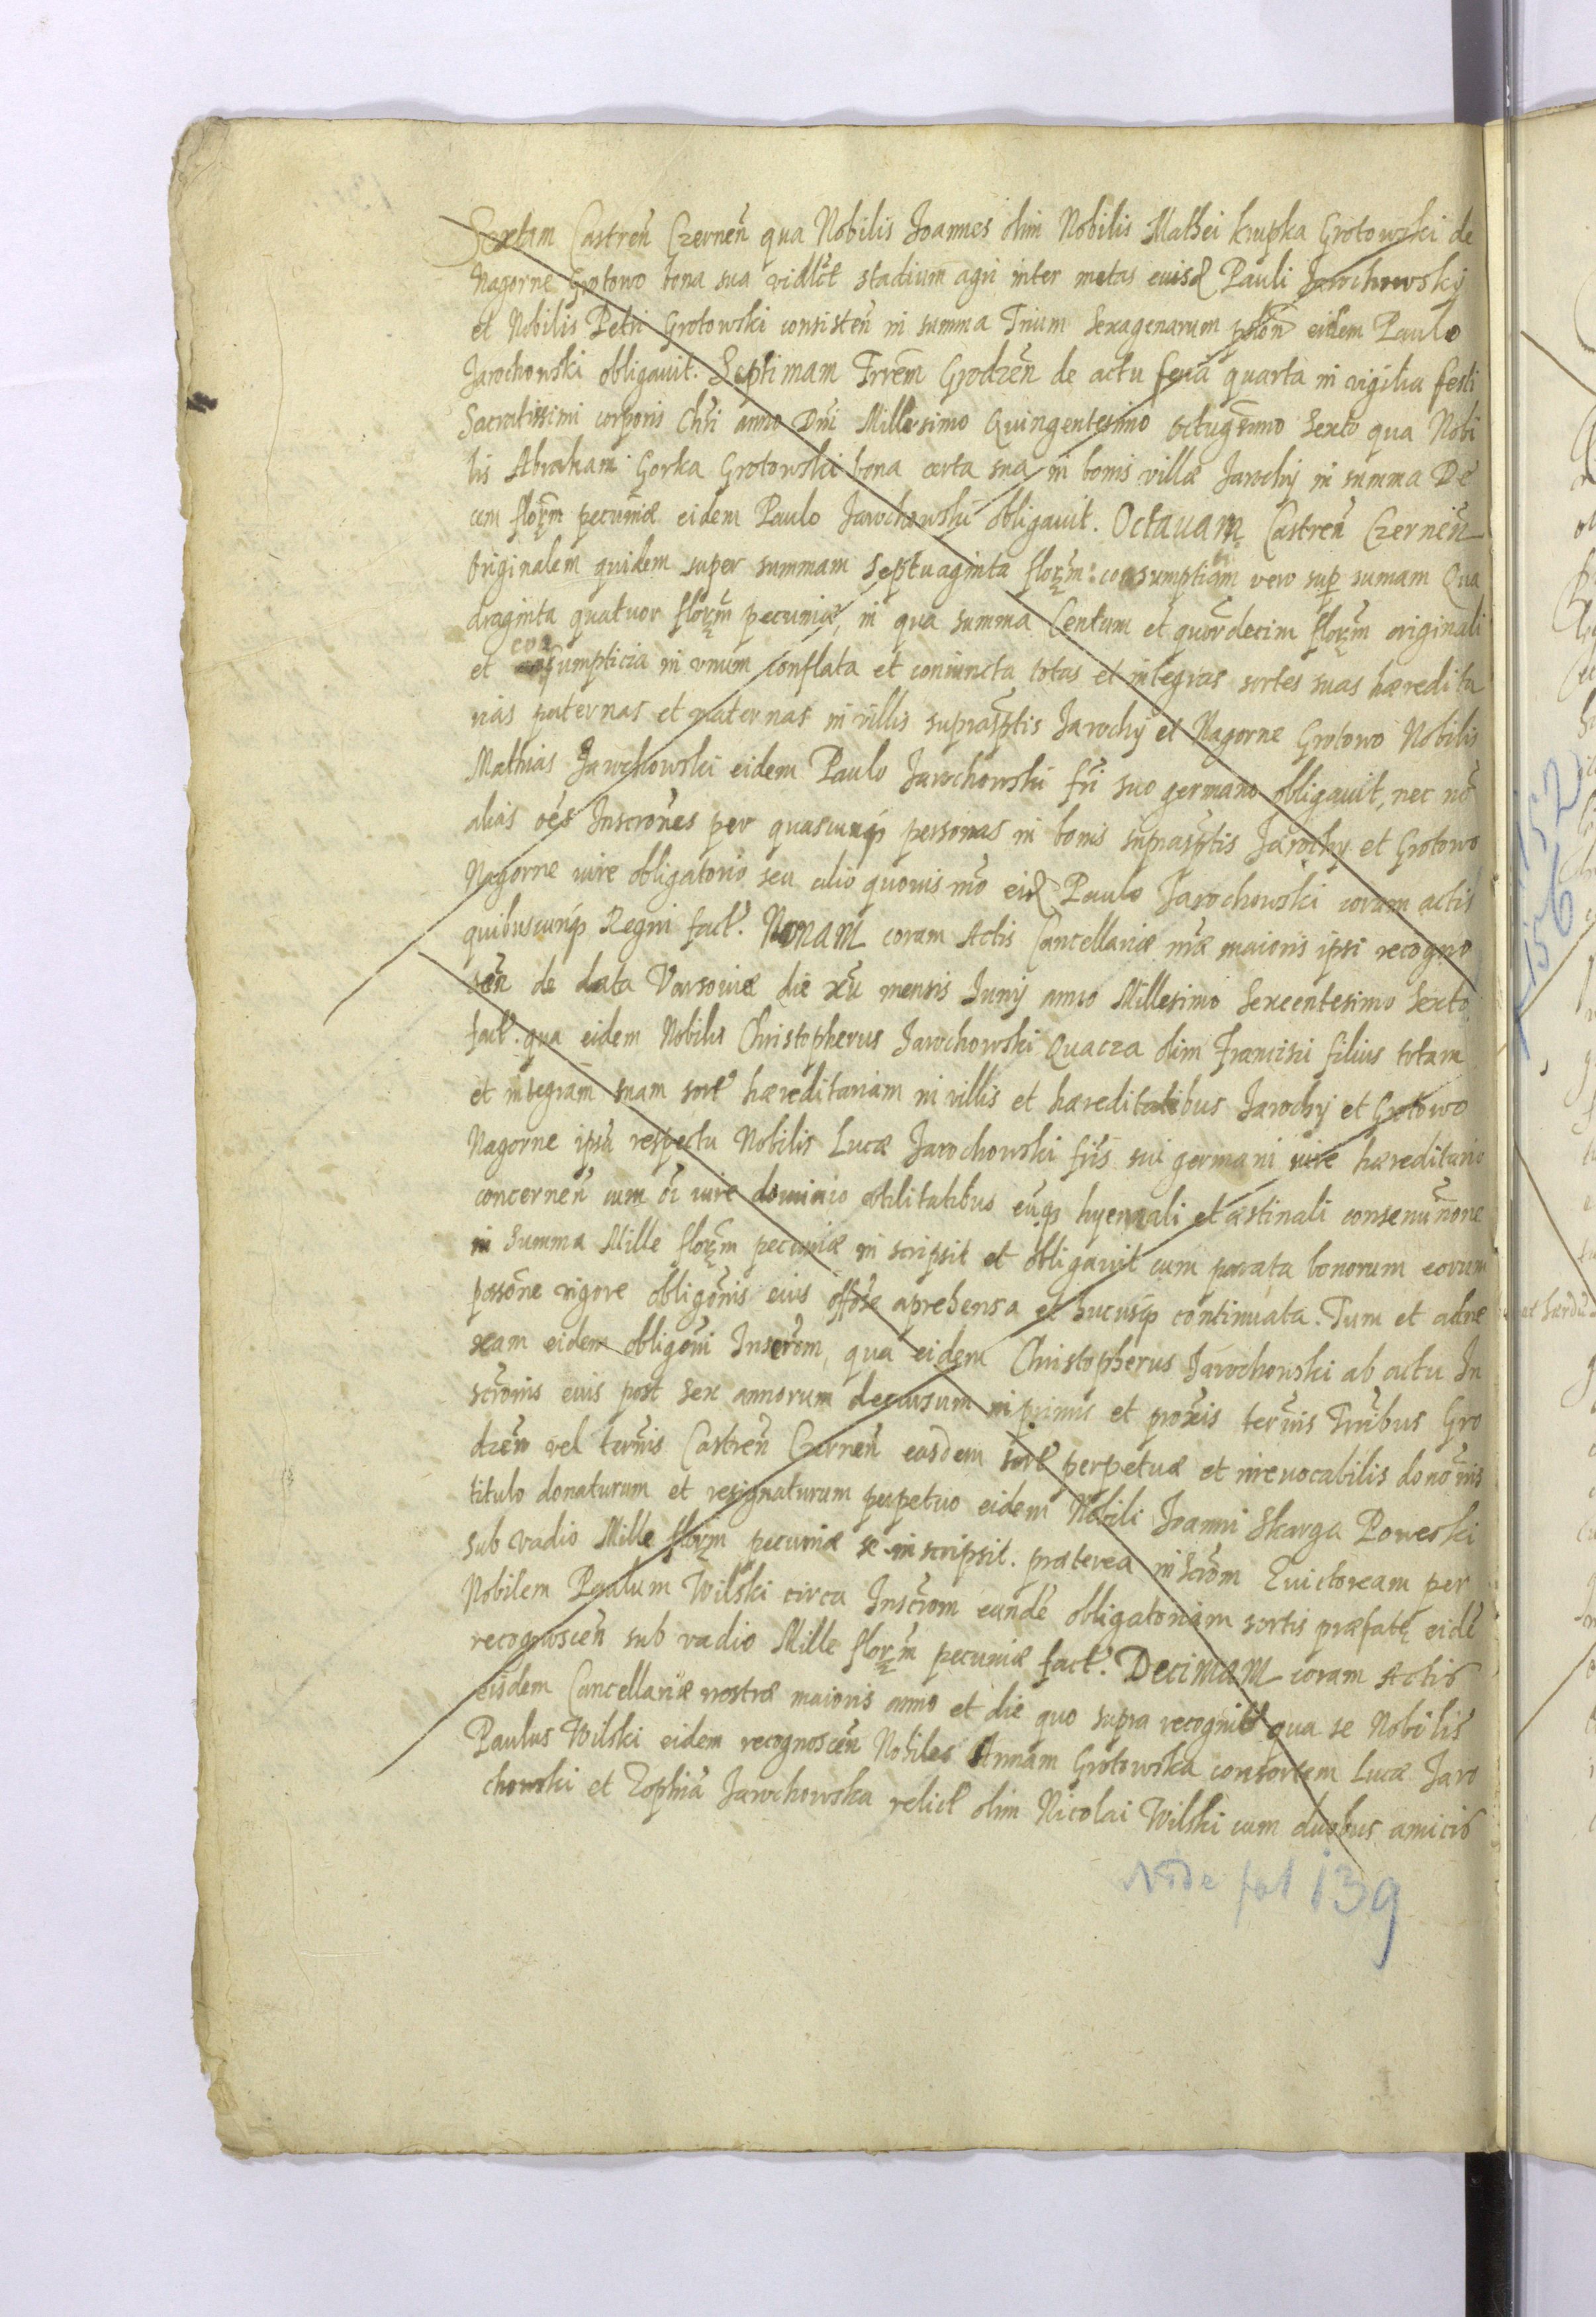 Sextam Castreñ Czerneñ qua Nobilis Joannes olim Nobilis Mathei Krupka Grotowski de
Nagorne Grotowo bona sua vidlct stadium agri inter metas euisd Pauli Jarochowskÿ
et Nobilis Petri Grotowski consisteñ in summa Trium Sexagenarum eidem Paulo
Jarochowski obligauit. Septimam Trrem̃ Grodzeñ de actu feria quarta in vigilia festi
Sacratissimi corporis Chri anno Dni Millesimo Quingentesimo octugsimo Sexto qua Nobi
lis Abraham Gorka Grotowski bona certa sua in bonis villæ Jarochÿ in summa De
cem florm pecuniæ eidem Paulo Jarochowski obligauit. Octauam Castreñ Czerneñ
Originalem quidem super summam septuaginta florm: consumptiam vero sup sumam Qua
draginta quatuor florm pecuniæ, in qua summa Centum et quordecim florm originali
et sumpticia in vnum conflata et coniuncta totas et integras sortes suas haeredita
rias paternas et maternas in villis suprasptis Jarochÿ et Nagorne Grotowo Nobilis
Mathias Jarochowski eidem Paulo Jarochowski fri suo germano obligauit, nec nõ
alias oẽs Inscrones per quascunq personas in bonis suprasptis Jarochy et Grotowo
Nagorne iure obligatorio seu alio quouis mõ eid Paulo Jarochowski coram actis
quibuscunq Regni fact. Nonam coram Actis Cancellariæ nræ maioris ipsi recogno
sceñ de data Varsouiæ die mensis Junÿ anno Millesimo Sexcentesimo Sexto
fact. qua eidem Nobilis Christopherus Jarochowski Quacza olim Francisci filius totam
et integram suam sort haereditariam in villis et haereditatibus Jarochÿ et Grotowo
Nagorne ipsũ respectu Nobilis Lucæ Jarochowski fris sui germani iure haereditario
concerneñ cum oi iure dominio vtilitatibus hyemali et æstiuali
in Summa Mille florm pecuniæ in scripsit et obligauit cum parata bonorum eorum
possone vigore obligonis euis aprehensa et hucusq continuata. Tum et adne
xam eidem obligoni Inscrom, qua eidem Christopherus Jarochowski ab actu In
scronis euis post sex annorum decursum in primis et proxis termis Trribus Gro
dzeñ vel termis Castreñ Czerneñ easdem sort perpetuæ et irreuocabilis donõnis
titulo donaturum et resignaturum perpetuo eidem Nobili Joanni Skarga Poweski
sub vadio Mille florm pecuniæ se inscripsit. præterea inscrom Euictoream per
Nobilem Paulum Wilski circa Inscrom eandẽ obligatoriam sortis præfatę eidẽ
recognosceñ sub vadio Mille florm pecuniæ fact. Decimam coram Actis
eisdem Cancellariæ nostræ maioris anno et die quo supra recognit qua se Nobilis
Paulus Wilski eidem recognosceñ Nobiles Annam Grotowska consortem Lucæ Jaro
chowski et Zophiã Jarochowska relict olim Nicolai Wilski cum duobus amicis
Vide fol 139
152
156